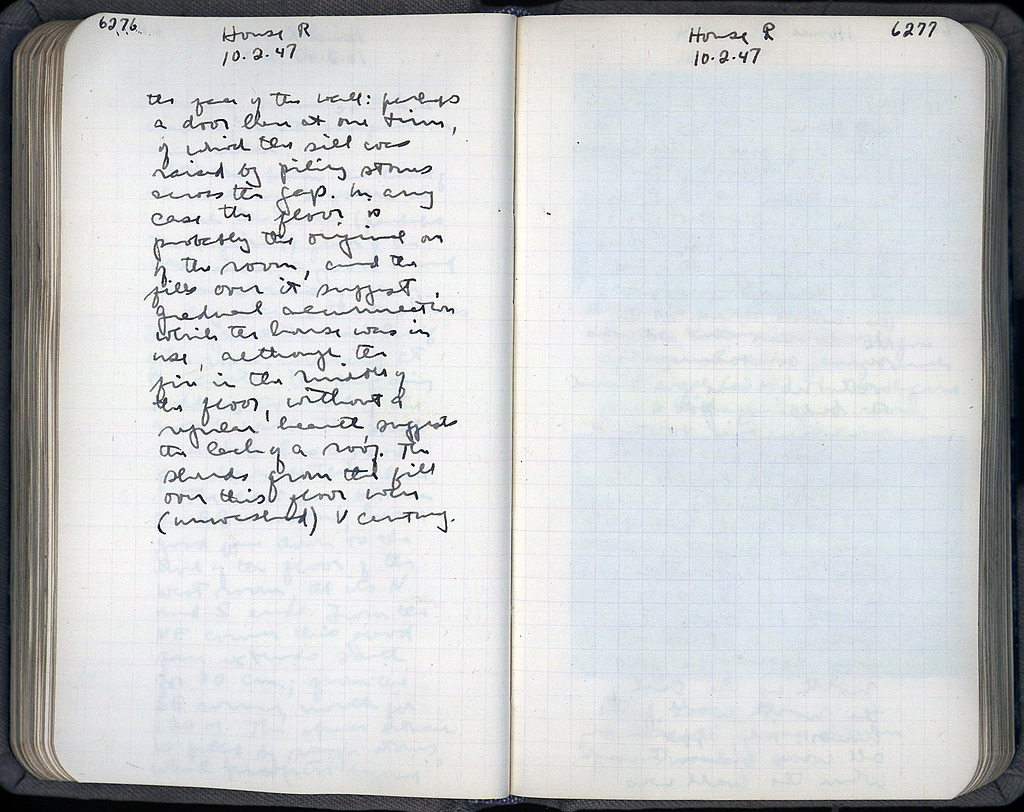 6276
House R
10.2.47
the face of the wall: perhaps
a door then at one time,
of which the sill was
raised by piling stones
across the gap. In any
case the floor is
probably the original one
of the room, and the
fills over it suggest
gradual accumulation
while the house was in
use, although the
fire in the middle of
the floor, without a
regular hearth suggests
the lack of a roof. The
sherds from the fill
over this floor were
(unwashed) V century.
6277
House R
10.2.47